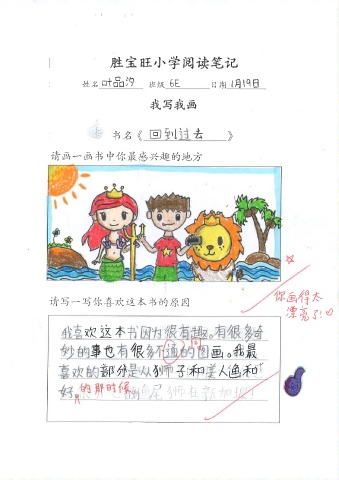 胜宝旺小学阅读笔记
姓名 叶品汐 班级 6E 日期 1月19日
我写我画
书名《 回到过去 》
请画一画书中你最感兴趣的地方
你画得太
漂亮了!
请写一写你喜欢这本书的原因
我喜欢这本书因为很有趣。有很多奇
妙的事也有很多不的图画。我最
喜欢的部分是从狮子和美人鱼和
好的那时候